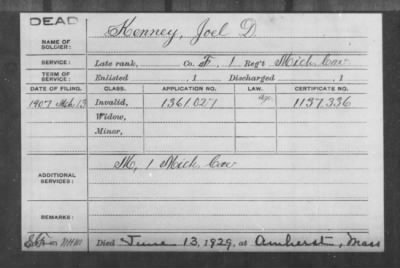 DEAD
NAME OF SOLDIER: Kenney, Joel D.
SERVICE: Late rank, Co. F, 1 Reg't Mich. Cav
TERM OF SERVICE: Enlisted , 1 Discharged , 1
DATE OF FILING. CLASS. APPLICATION NO. LAW. CERTIFICATE NO.
1907 Mch 13 Invalid, 1361027 Age. 1137336
Widow,
Minor,
ADDITIONAL SERVICES: M, 1 Mich. Cav
REMARKS:
Died June 13, 1929, at Amherst, Mass